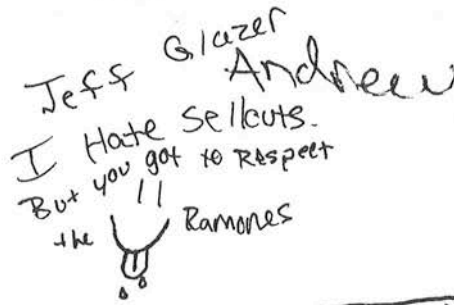 Jeff Glazer
Andrew
I Hate Sellouts.
But you got to Respect
the Ramones